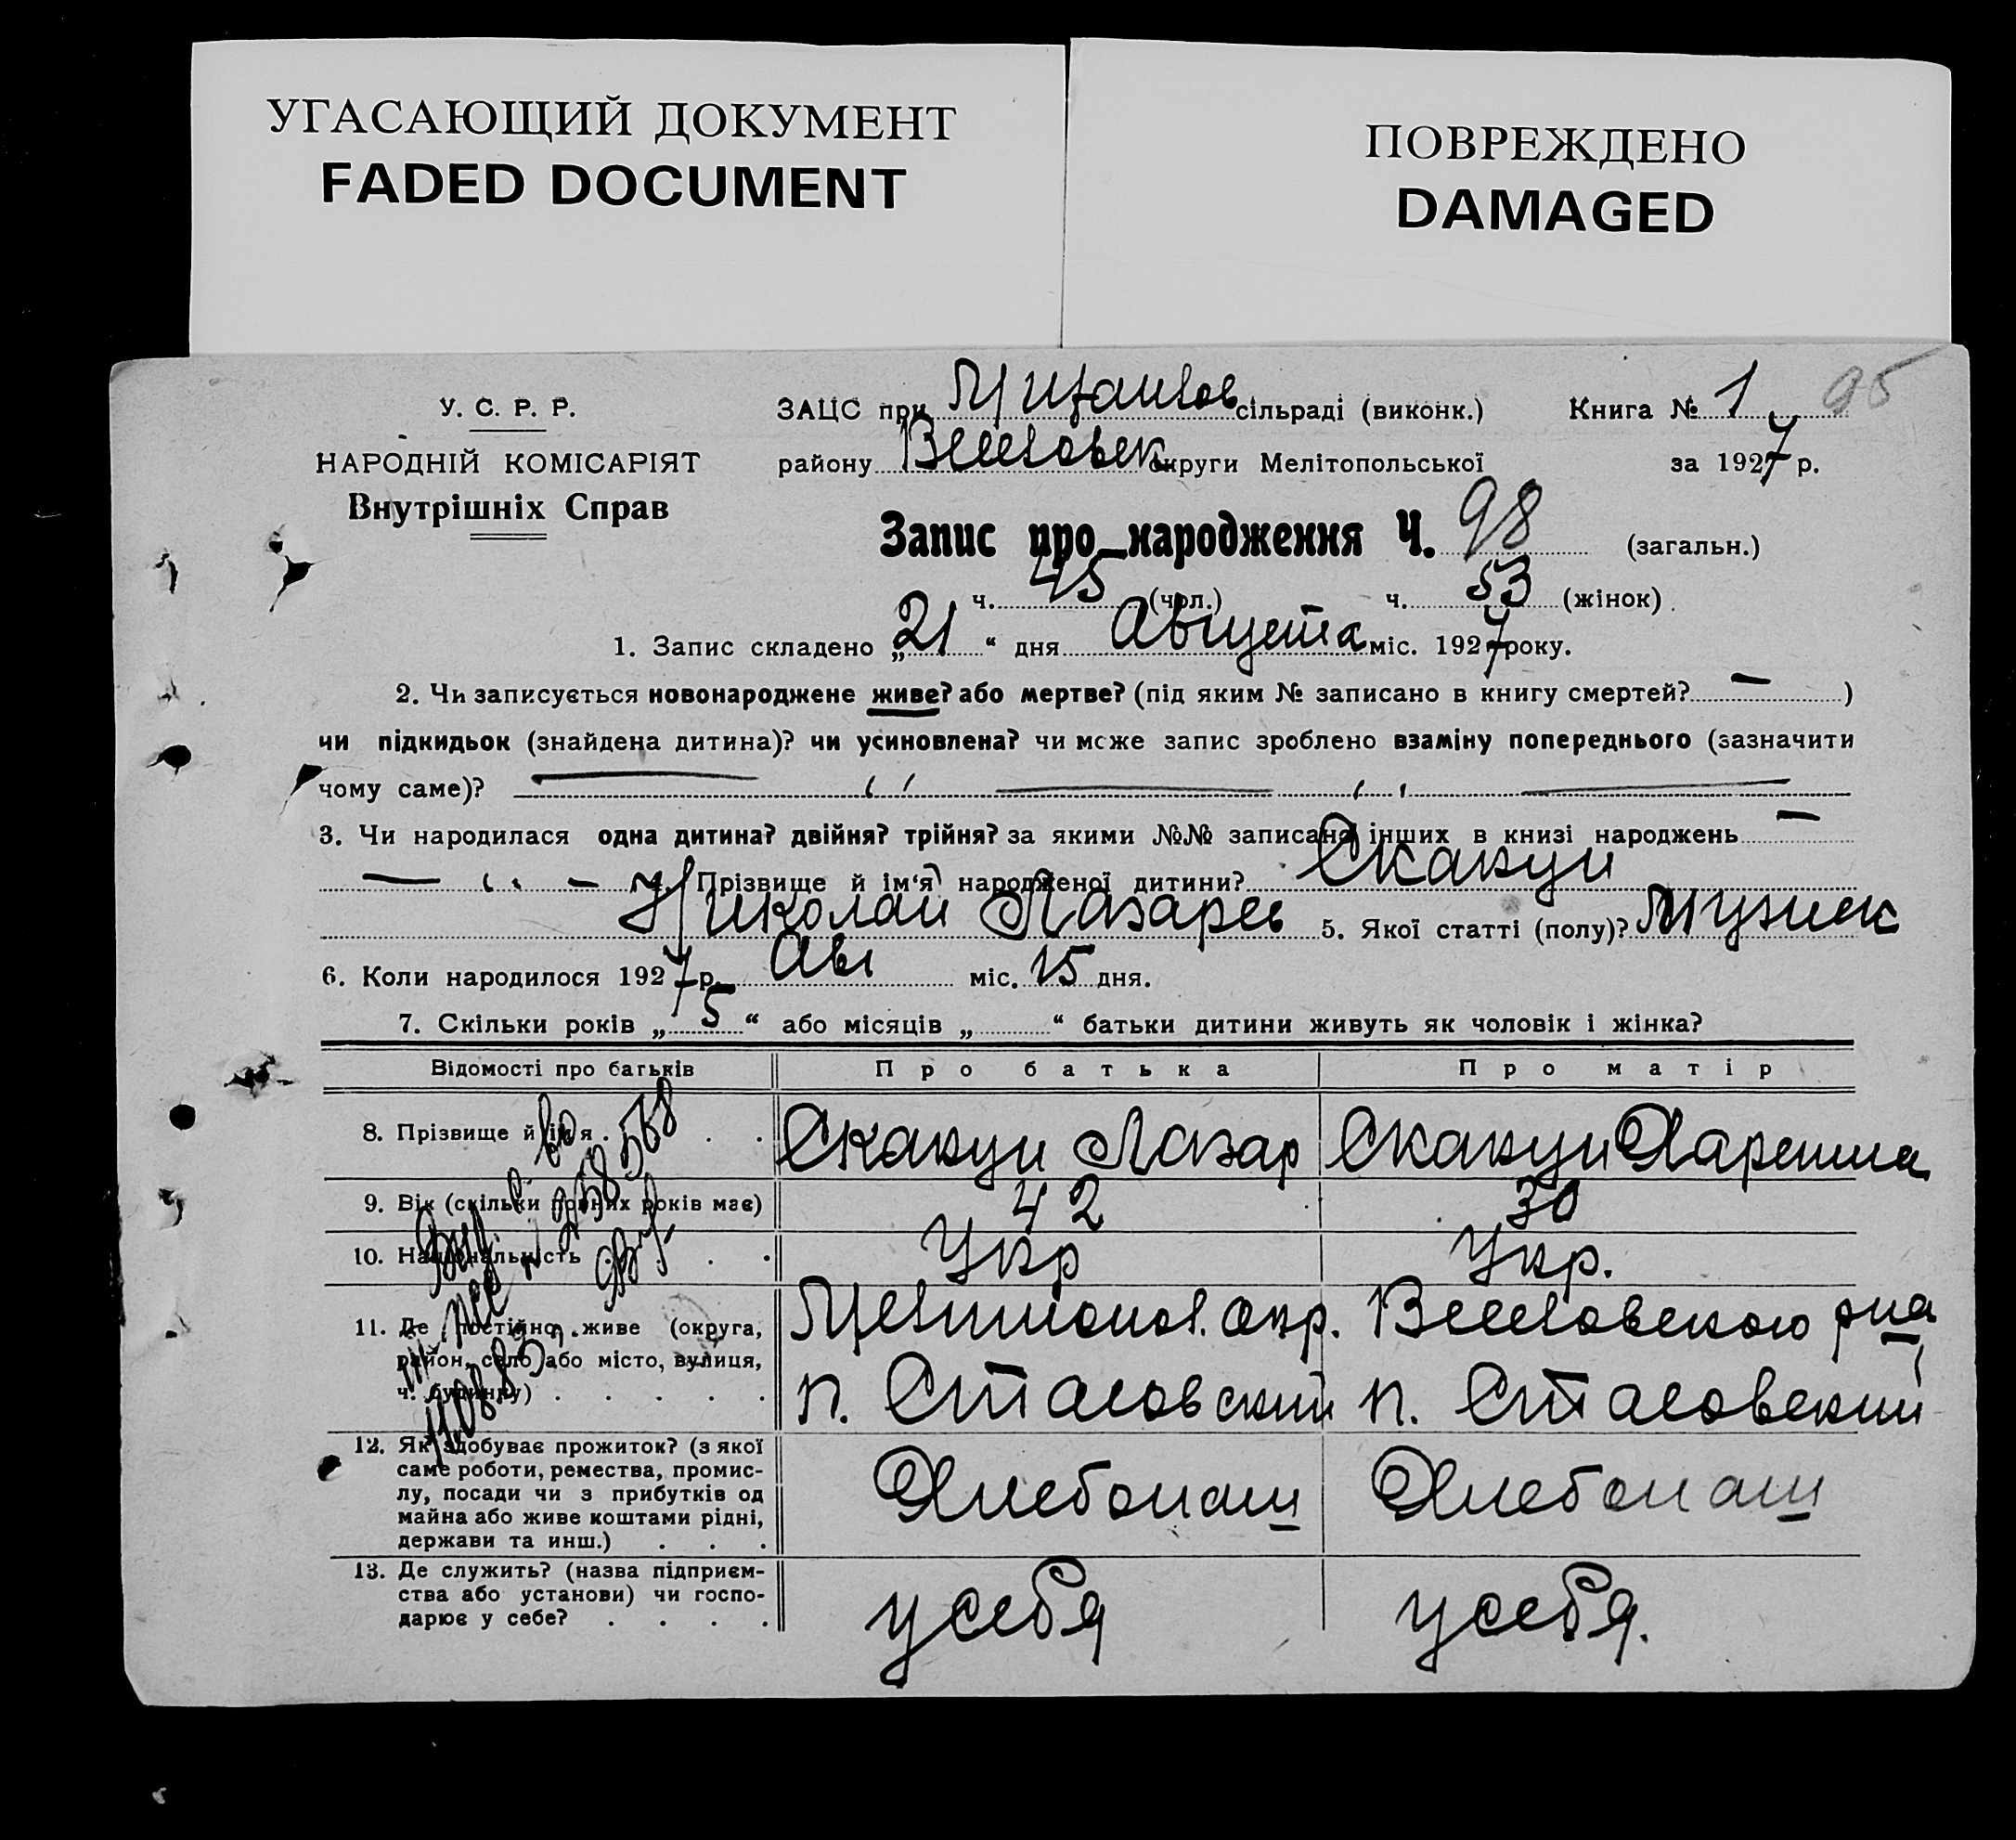 УГАСАЮЩИЙ ДОКУМЕНТ
FADED DOCUMENT
ПОВРЕЖДЕНО
DAMAGED
У. С. Р. Р.
НАРОДНІЙ КОМІСАРІЯТ
Внутрішніх Справ
ЗАЦС при сільраді (виконк.) Книга № 1 95
району Веселовск округи Мелітопольської за 1927 р.
Запис про народження Ч. 98 (загальн.)
ч. 45 (чол.) ч. 53 (жінок)
1. Запис складено „21“ дня Августа міс. 1927 року.
2. Чи записується новонароджене живе? або мертве? (під яким № записано в книгу смертей? — )
чи підкидьок (знайдена дитина)? чи усиновлена? чи може запис зроблено взаміну попереднього (зазначити
чому саме)? — ʼʼ — ʼʼ —
3. Чи народилася одна дитина? двійня? трійня? за якими №№ записано інших в книзі народжень —
— ʼʼ — 4. Прізвище й ім'я народженої дитини? Скакун
Николай Лазарев 5. Якої статті (полу)? Мужск
6. Коли народилося 1927 р. Авг міс. 15 дня.
7. Скільки років „5“ або місяців „ “ батьки дитини живуть як чоловік і жінка?
Відомості про батьків Про батька Про матір
8. Прізвище й ім'я . . . Скакун Лазар Скакун
9. Вік (скільки повних років має) 42 30
10. Національність . . . Укр Укр.
11. Де постійно живе (округа, район, село або місто, вулиця, ч. будинку) . . . . . Мелитопол. окр. Веселовского р-на
п. Стасовский п. Стасовский
12. Як здобуває прожиток? (з якої
саме роботи, ремества, промис-
лу, посади чи з прибутків од
майна або живе коштами рідні,
держави та инш.) . . . Хлебопаш Хлебопаш
13. Де служить? (назва підприєм-
ства або установи) чи госпо-
дарює у себе? . . . . у себя у себя.